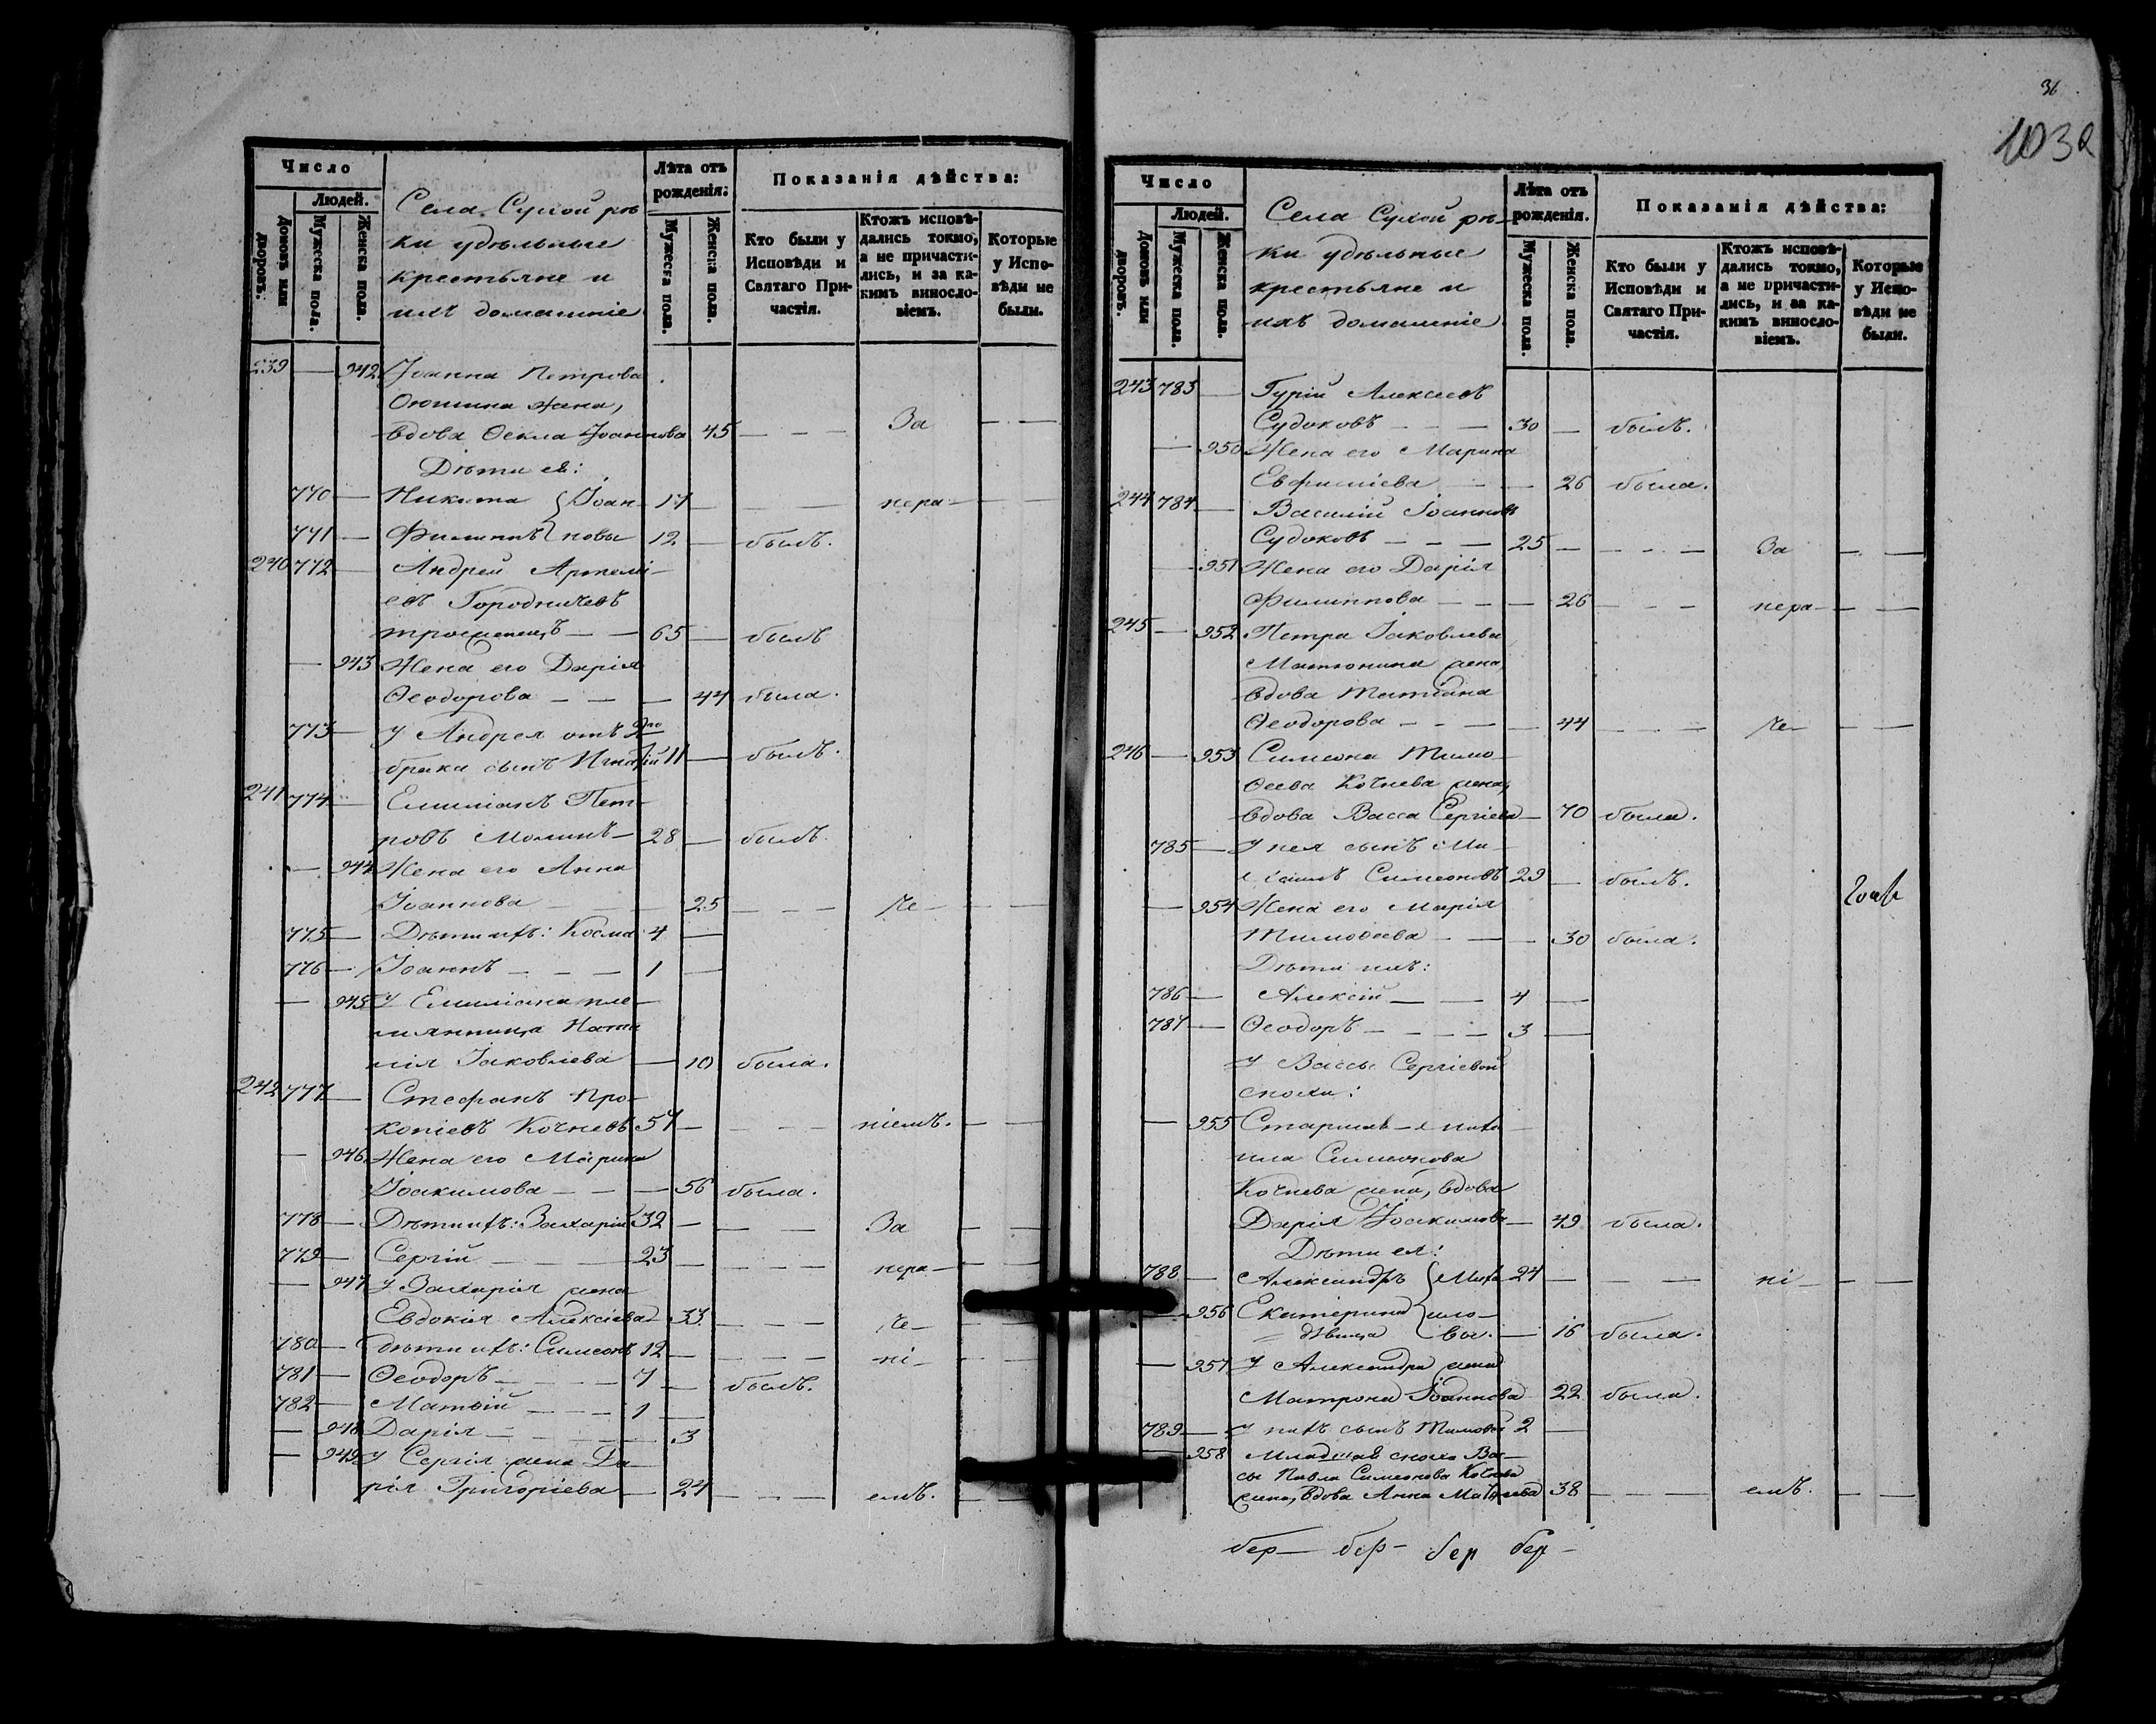 36
1032
Число
Людей.
Домовъ или дворовъ.
Мужеска пола.
Женска пола.
Села Сухой рѣ-
ки удѣльные
крестьяне и
ихъ домашніе
Лѣта отъ
рожденія:
Мужеска пола.
Женска пола.
Показанія дѣйства:
Кто были у
Исповѣди и
Святаго При-
частія.
Ктожъ исповѣ-
дались токмо,
а не причасти-
лись, и за ка-
кимъ виносло-
віемъ.
Которые
у Испо-
вѣди не
были.
239 — 942 Іоанна Петрова
жена,
вдова Ѳекла Іоаннова 45 — — — За — —
Дѣти ея:
770 — Никита { Іоан- 17 — — — нера- — —
771 — Филиппъ { новы 12 — былъ.
240 772 — Андрей Артемі-
евъ Городничевъ
троеженецъ — — 65 — былъ
— 943 Жена его Дарія
Ѳеодорова — — — 44 была.
773 — У Андрея отъ 2го
брака сынъ Игнатій 11 — былъ.
241 774 — Емиліанъ Пет-
ровъ Молинъ — 28 — былъ.
— 944 Жена его Анна
Іоаннова — — — 25 — — — че- — —
775 — Дѣти ихъ: Косма 4 —
776 — Іоаннъ — — — 1 —
— 945 У Емиліана пле-
мянница Ната-
лія Іаковлева — 10 была.
242 777 — Стефанъ Про-
копіевъ Кочневъ 57 — — — — ніемъ. — —
— 946 Жена его Марина
Іоакимова — — — 56 была.
778 — Дѣти ихъ: Захарій 32 — — — За — —
779 — Сергій — — — 23 — — — — нера- — —
— 947 У Захарія жена
Евдокія Алексіева 33. — — — че- —
780 — Дѣти ихъ: Симеонъ 12 — — — — ні- — —
781 — Ѳеодоръ — — — 7 — былъ.
782 — Матѳій — — — 1 —
— 948 Дарія — — — 3
— 949 У Сергія жена Да-
рія Григоріева — 24 — — — емъ. — —
Число
Людей.
Домовъ или дворовъ.
Мужеска пола.
Женска пола.
Села Сухой рѣ-
ки удѣльные
крестьяне и
ихъ домашніе
Лѣта отъ
рожденія.
Мужеска пола.
Женска пола.
Показанія дѣйства:
Кто были у
Исповѣди и
Святаго При-
частія.
Ктожъ исповѣ-
дались токмо,
а не причасти-
лись, и за ка-
кимъ виносло-
віемъ.
Которые
у Испо-
вѣди не
были.
243 783 — Гурій Алексеевъ
Судоковъ — — — 30 — былъ.
— 950 Жена его Марина
Евфиміева — — 26 была.
244 784 — Василій Іоанновъ
Судоковъ — — — 25 — — — — За — —
— 951 Жена его Дарія
Филиппова — — — 26 — — — нера- — —
245 — 952 Петра Іаковлева
Матюнина жена,
вдова Татіана
Ѳеодорова — — — — 44 — — — че- — —
246 — 953 Симеона Тимо-
ѳеева Кочнева жена,
вдова Васса Сергіева — 70 была.
785 — У нея сынъ Ми-
хаилъ Симеоновъ 29 — былъ.
— 954 Жена его Марія
Тимоѳеева — — — 30 была.
Дѣти ихъ:
786 — Алексій — — 4 —
787 — Ѳеодоръ — — — 3 —
У Вассы Сергіевой
снохи:
— 955 Старшая — Миха-
ила Симеонова
Кочнева жена, вдова
Дарія Іоакимова — 49 была.
Дѣти ея:
788 — Александръ { Миха- 24 — — — ні- — —
— 956 Екатерина { ило-
дѣвица { вы. — 16 была.
— 957 У Александра жена
Матрона Іоаннова 22 была.
789 — У нихъ сынъ Тимоѳей 2 —
— 958 Младшая сноха Ва-
сы Павла Симеонова Кочнева
жена, вдова Анна 38 — — — емъ. — —
бер— бер— бер бер—